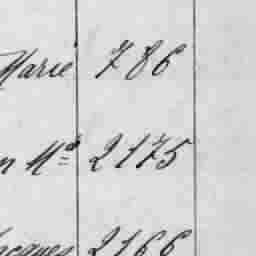 Marie 786
n Md 2175
acques 2166